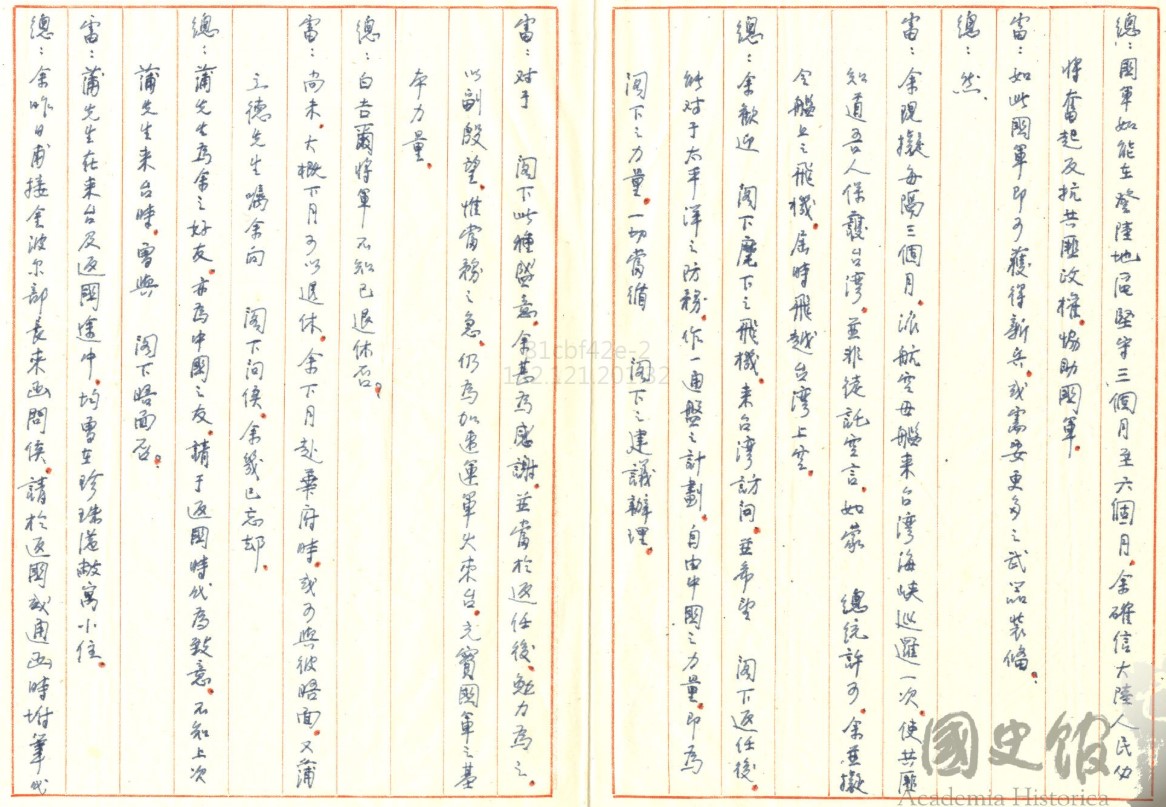 總：國軍如能在登陸地區堅守三個月至六個月，余確信大陸人民仍
將奮起反抗共匪政權，協助國軍。
雷：如此國軍即可獲得新兵，或需要更多之武器裝備。
總：然。
雷：余現擬每隔三個月，派航空母艦來台灣海峽巡邏一次，使共匪
知道吾人保護台灣，並非徒託空言，如蒙　總統許可，余並擬
令艦上之飛機，屆時飛越台灣上空。
總：余歡迎　閣下麾下之飛機，來台灣訪問，並希望　閣下返任後
能對于太平洋之防務，作一通盤之計劃，自由中國之力量，即為
閣下之力量，一切當循　閣下之建議辦理。
雷：对于　閣下此種盛意，余甚為感謝，並當於返任後，勉力為之，
以副殷望，惟當務之急，仍為加速運軍火來台，充實國軍之基
本力量。
總：白吉爾將軍不知已退休否。
雷：尚未，大概下月可以退休，余下月赴華府時，或可與彼晤面，又蒲
立德先生囑余向　閣下问侯，余幾已忘却。
總：蒲先生為余之好友，亦為中國之友，請于返國時代為致意，不知上次
蒲先生來台時，曾與　閣下晤面否。
雷：蒲先生在來台及返國途中，均曾在珍珠港敝寓小住。
總：余昨日甫接金波尔部長來函問侯，請於返國或通函時坿筆代
國史館
Academia Historica
81cbf42e-2